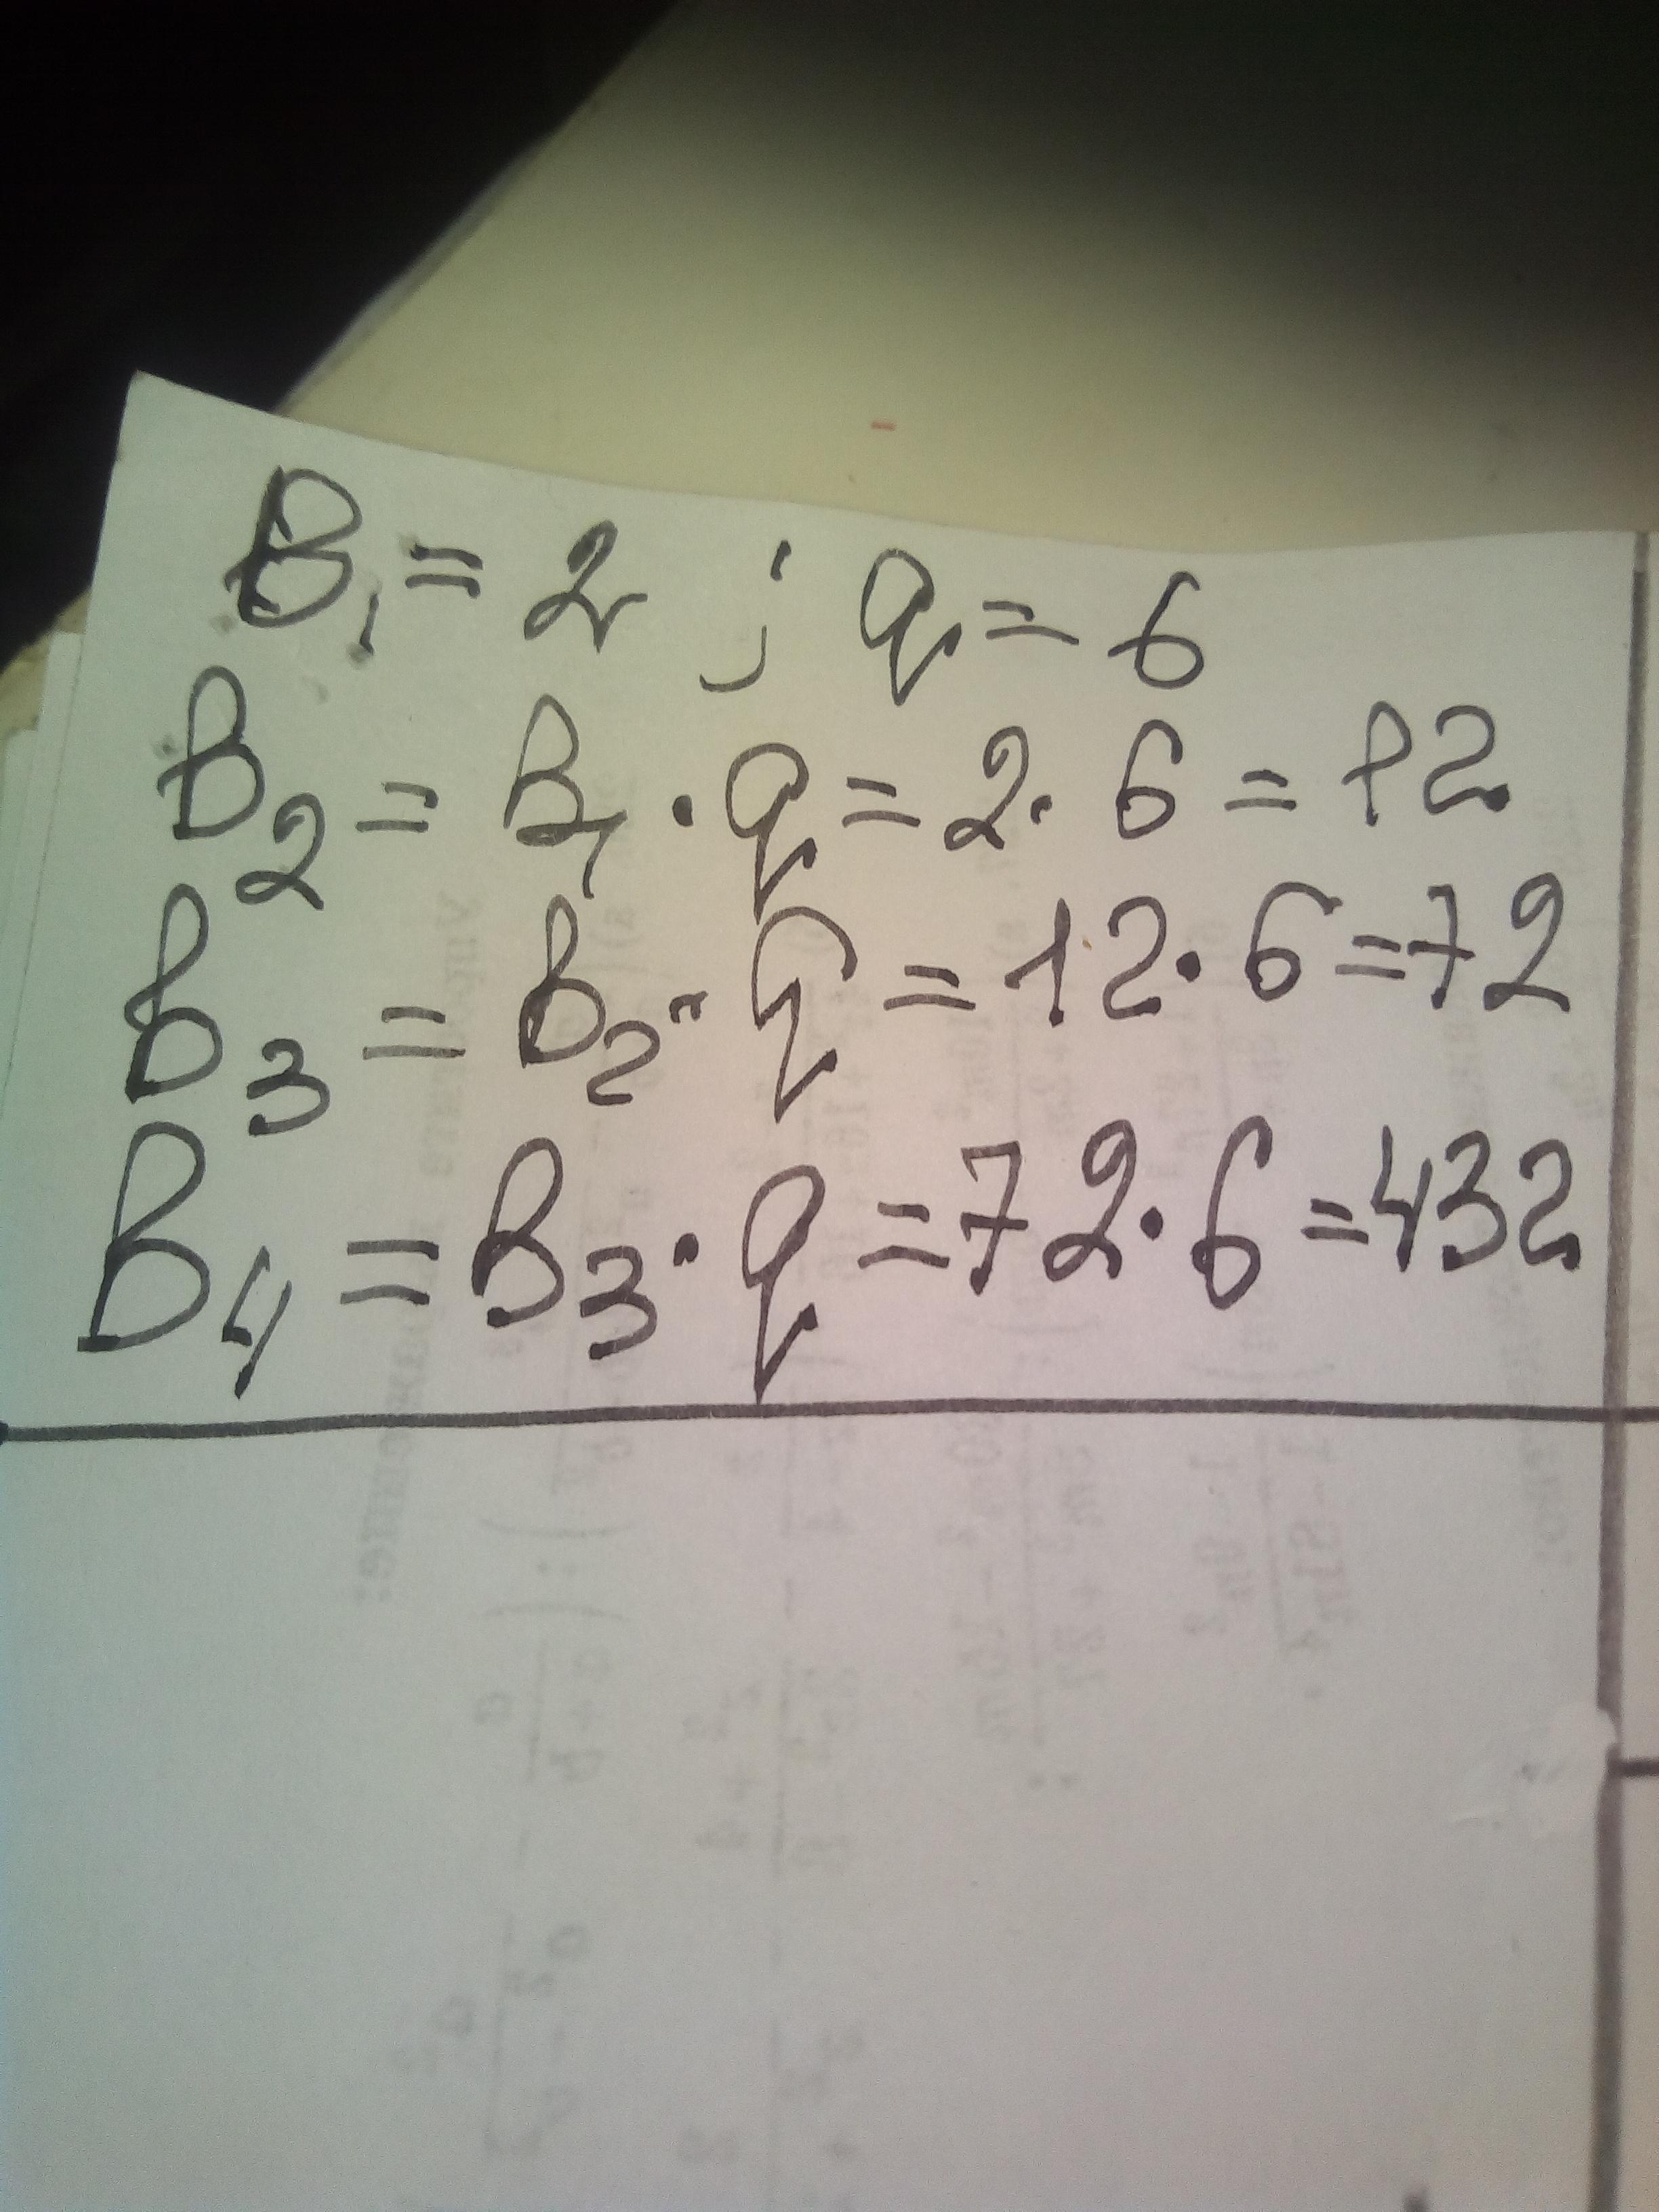 B₁ = 2 ; q = 6
B₂ = B₁ · q = 2 · 6 = 12
B₃ = B₂ · q = 12 · 6 = 72
B₄ = B₃ · q = 72 · 6 = 432